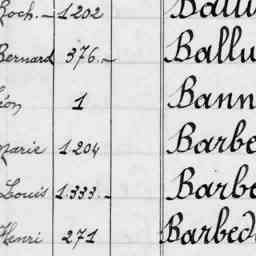 Roch. — 1202 Ballu
Bernard 376. — Ballu
Léon 1 Bann
Marie 1204 Barbe
Louis 1.333. — Barbe
Henri 271 Barbed